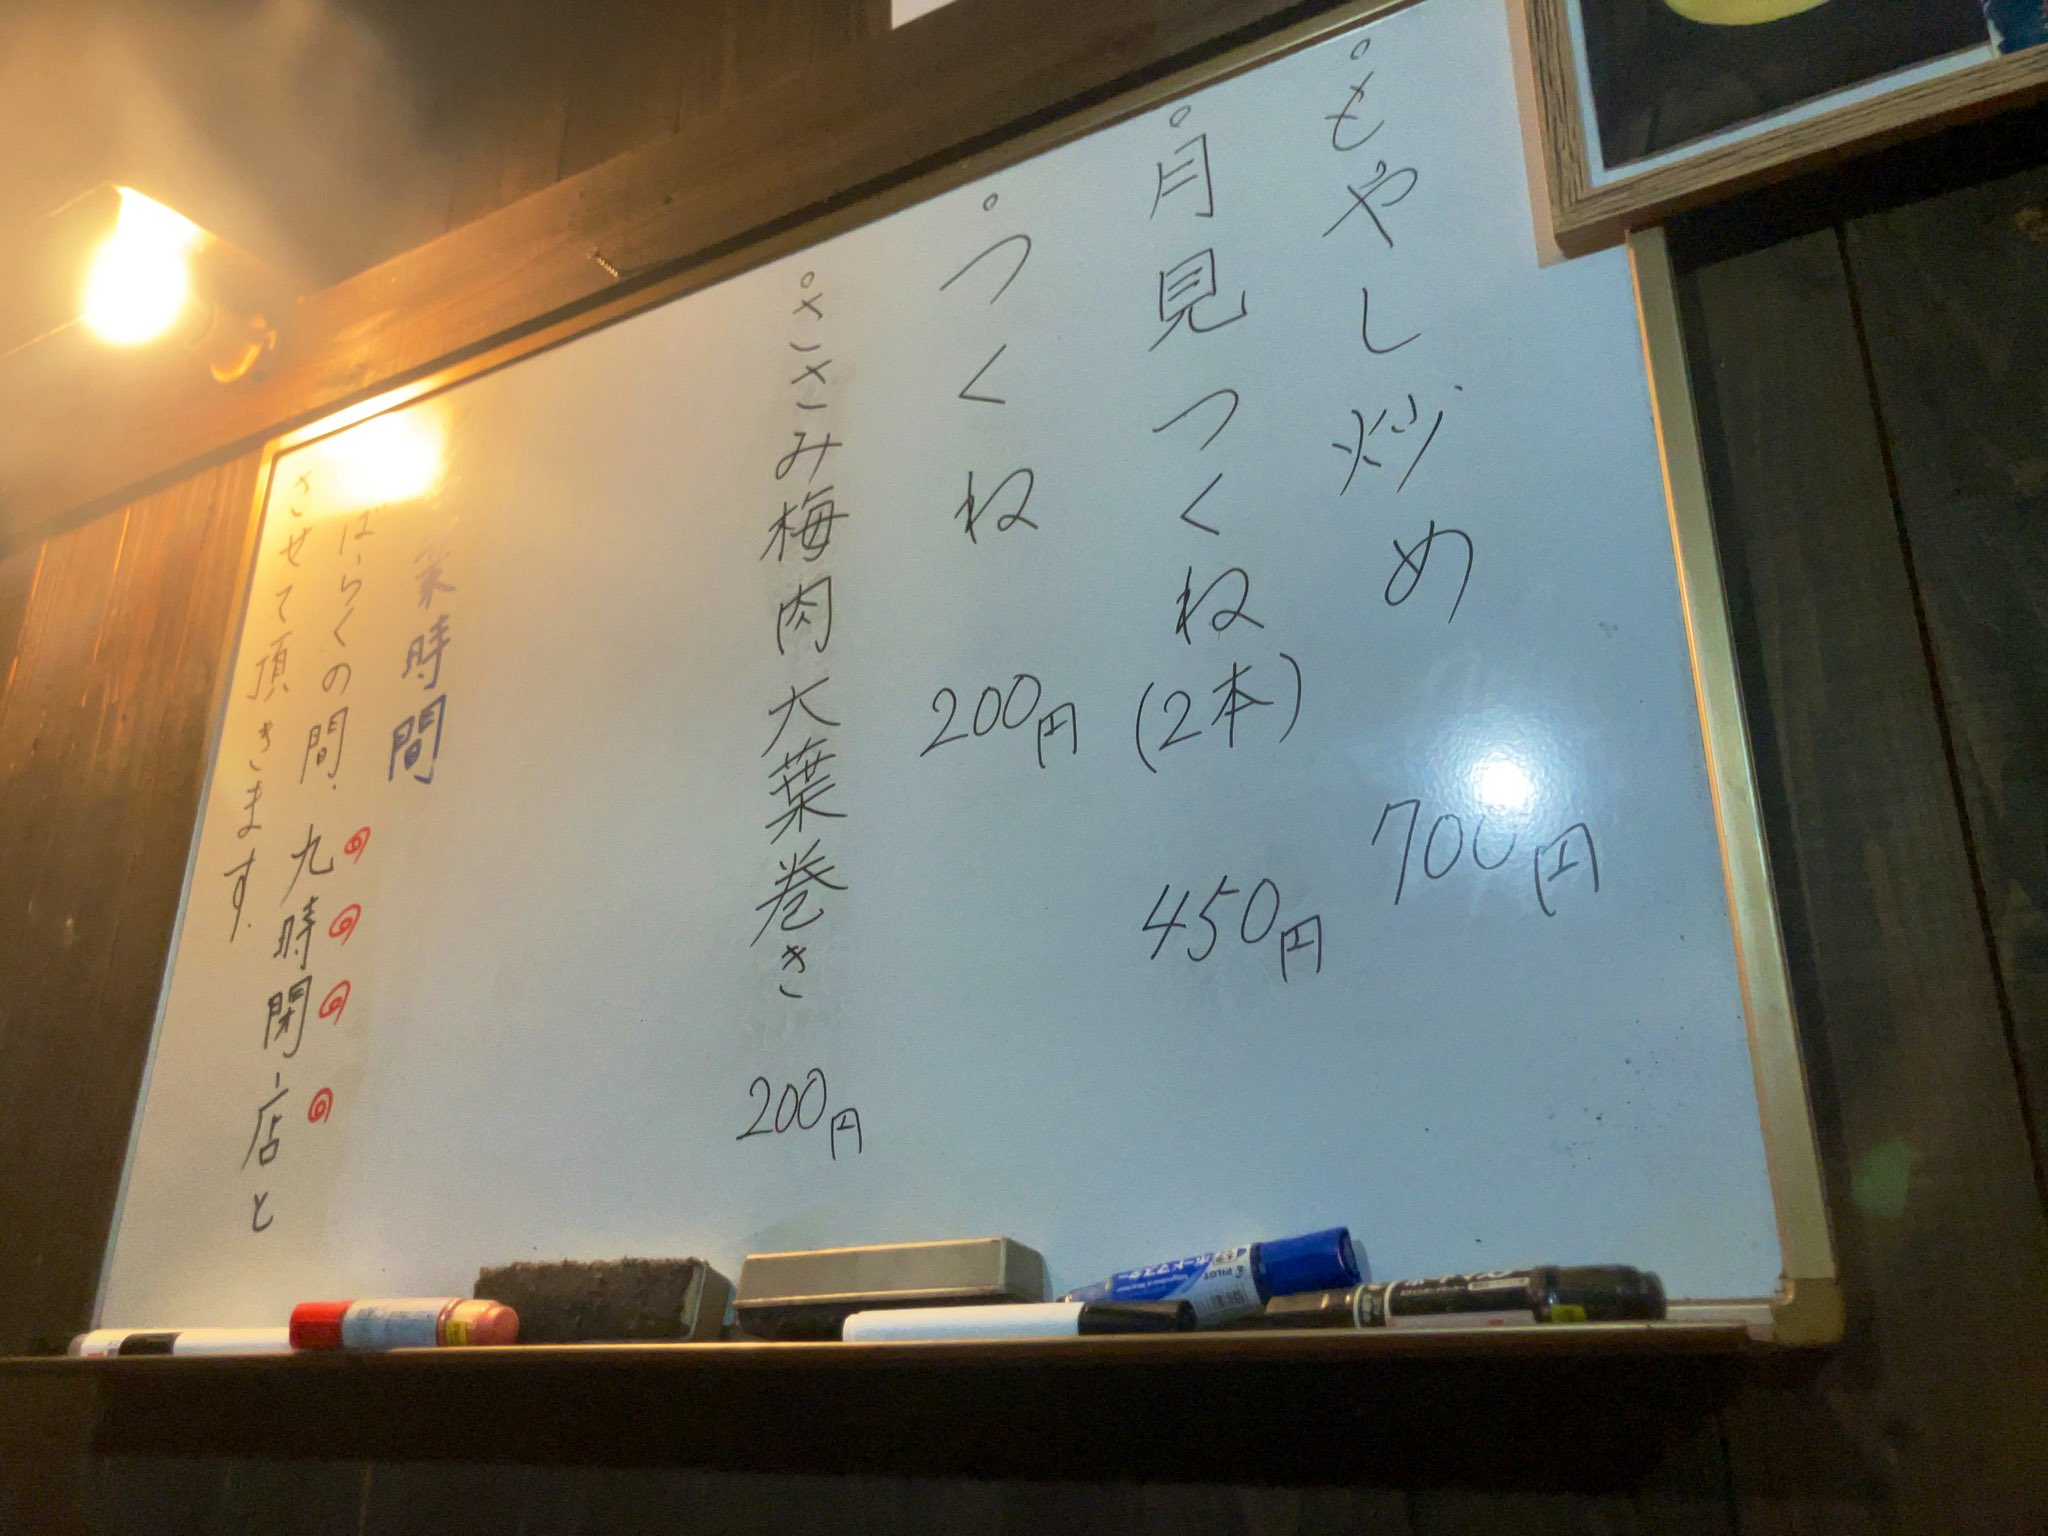 。もやし炒め 700円
。月見つくね(2本) 450円
。つくね 200円
。ささみ梅肉大葉巻き 200円
業時間
ばらくの間.九時閉店と
させて頂きます.
ボードマスター
PILOT